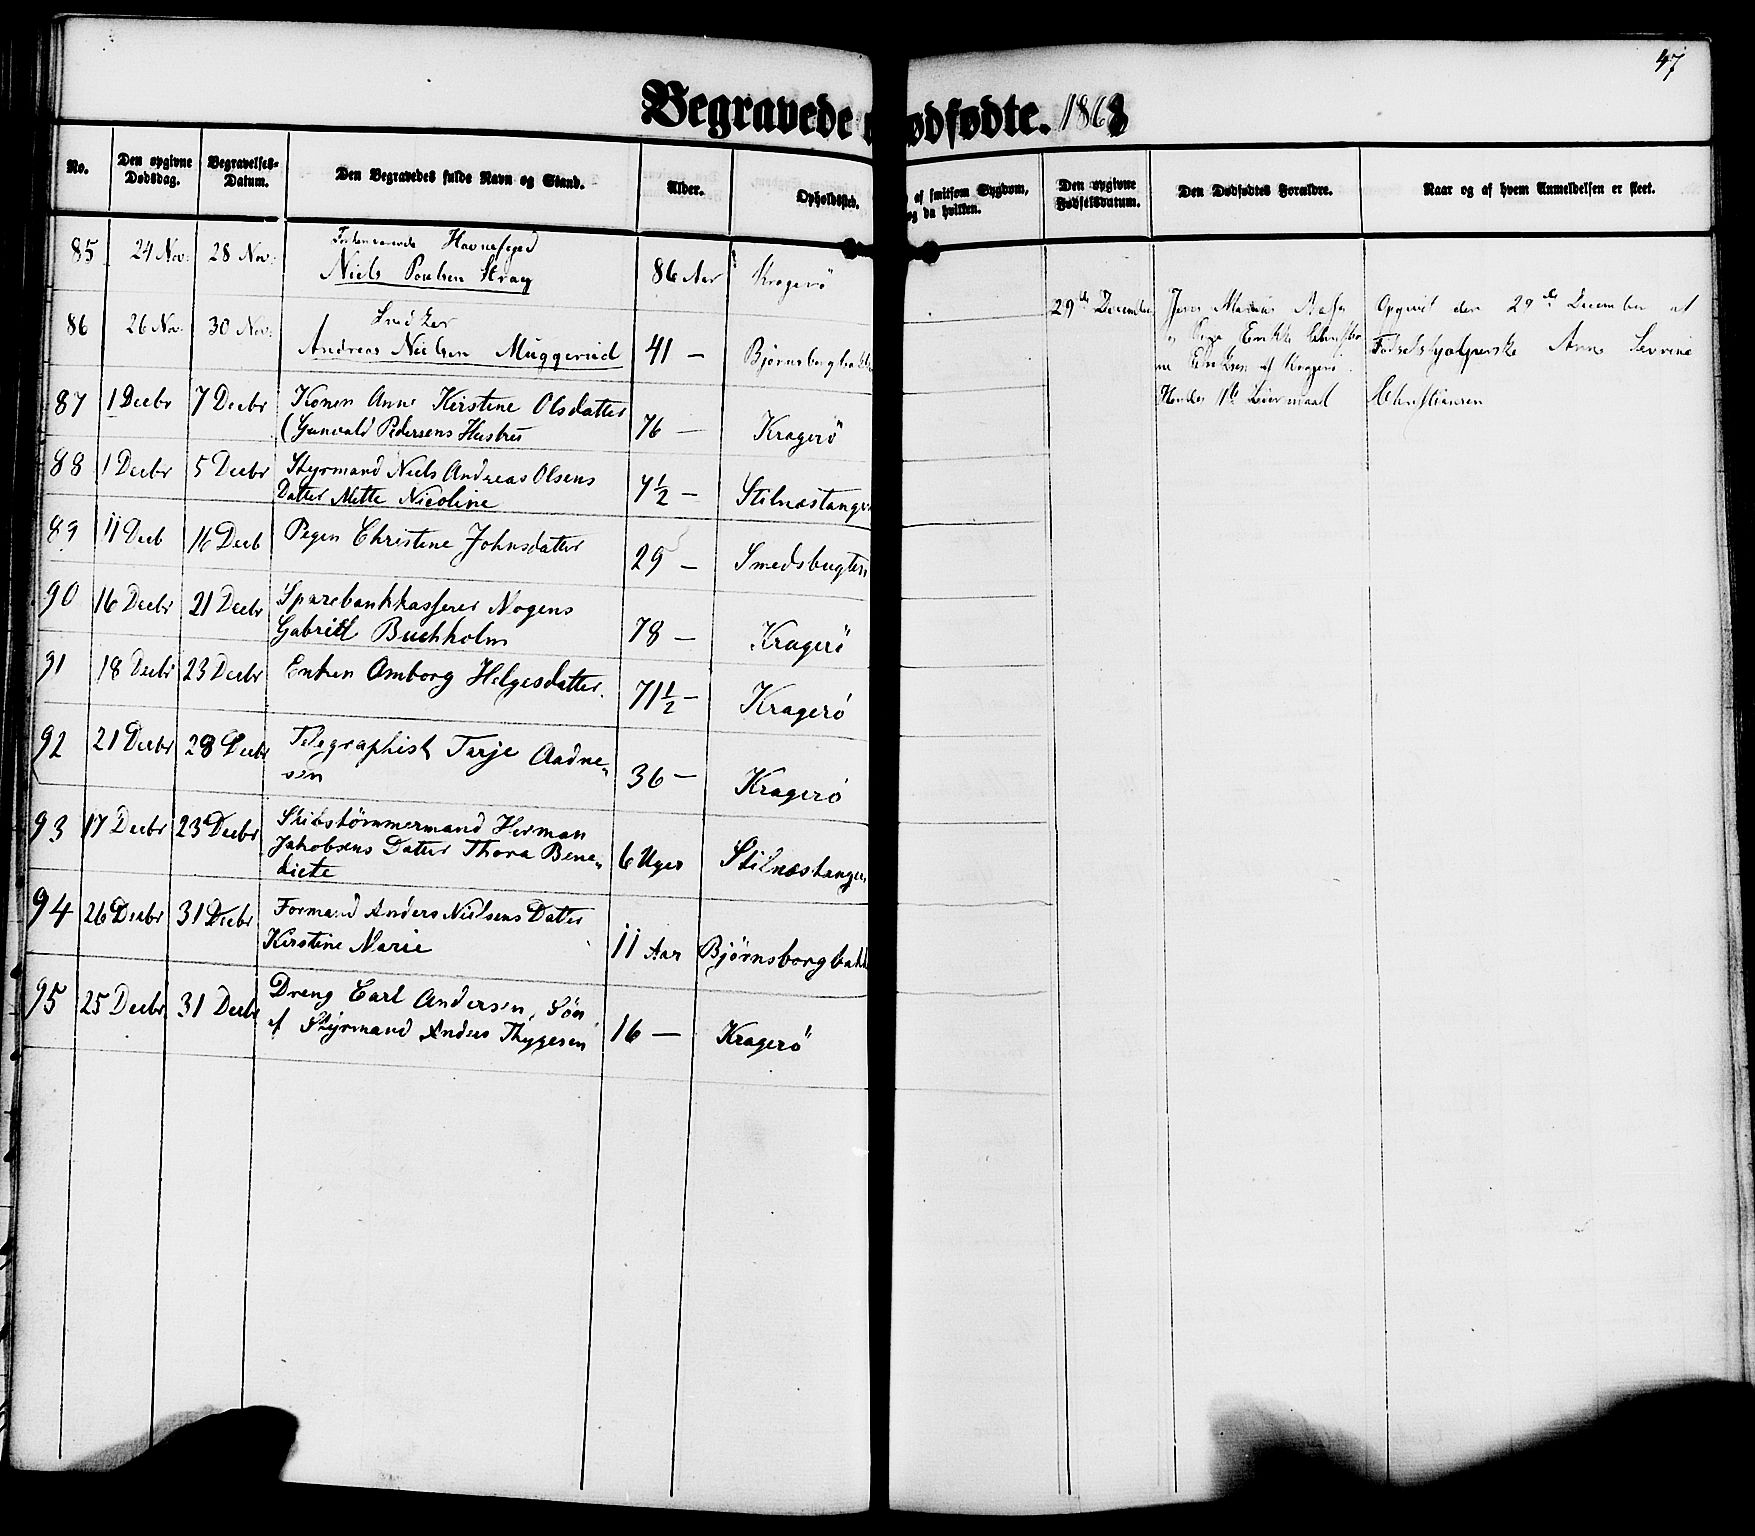 47
Begravede ødfødte. 1863
No.
Den opgivne Dødsdag.
Begravelses-Datum.
Den Begravedes fulde Navn og Stand.
Alder.
Opholdssted.
af smitsom Sygdom, og da hvilken.
Den opgivne Fødselsdatum.
Den Dødfødtes Forældre.
Naar og af hvem Anmeldelsen er skeet.
85 24 Nov. 28 Nov. Havnefoged
Niels Poulsen 86 Aar Kragerö
86 26 Nov. 30 Nov. Snedker
Andreas Nielsen Muggerud 41 — Bjørnsborgbakke
87 1 Decbr 7 Decbr Konen Anne Kirstine Olsdatter
(Gunvald Pedersens Hustru 76 — Kragerö
88 1 Decbr 5 Decbr Styrmand Niels Andreas Olsens
Datter Mette Nicoline 7½ — Stilnæstangen
89 11 Decb 16 Decb Pigen Christine Johnsdatter
29 — Smedsbugten
90 16 Decbr 21 Decbr Sparebankkasserer Mogens
Gabriel Buchholm 78 — Kragerö
91 18 Decbr 23 Decbr Enken Amborg Helgesdatter.
71½ — Kragerö
92 21 Decbr 28 Decbr Telegraphist Tarje Aadne-
sen 36 — Kragerö
93 17 Decbr 23 Decbr Skibstömmermand Herman
Jakobsens Datter Thora Bene-
dicte 6 Uger Stilnæstangen
94 26 Decbr 31 Decbr Formand Anders Nielsens Datter
Kirstine Marie 11 Aar Bjørnsborgbakk
95 25 Decbr 31 Decbr Dreng Carl Andersen, Sön
af Styrmand Anders Thygesen 16 — Kragerö
29de December Jens Marius
og Pige Enrikke
af Kragerö.
Hendes 1ste Leiermaal
Opgivet den 29de December af
Fødselshjælperske Anne Severine
Christiansen